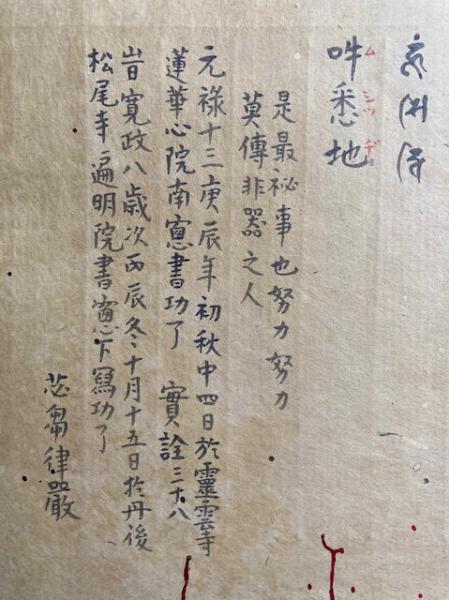 吽悉地
ム シツ ヂ
是最祕事也努力努力
莫傳非器之人
元祿十三庚辰年初秋中四日於靈雲寺
蓮華心院南窻書功了 實詮三十八
旹寛政八歳次丙辰冬十月十五日於丹後
松尾寺遍明院書窻下寫功了
苾蒭律嚴